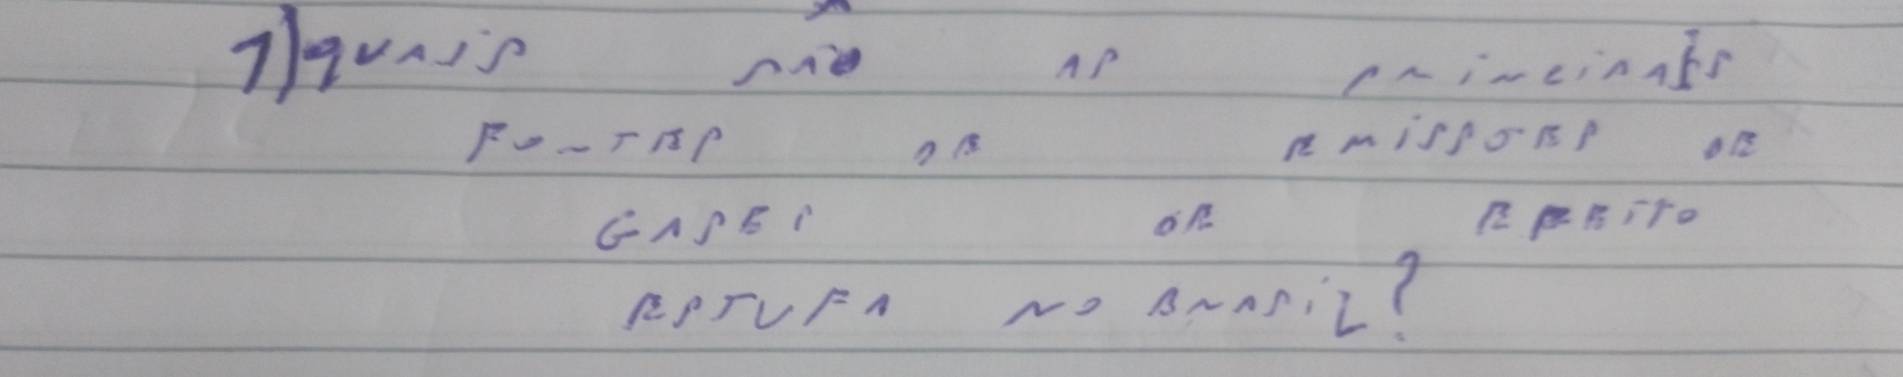 1) quais são as principais
Fontes de emissões de
Gases de efeito
estufa no Brasil?